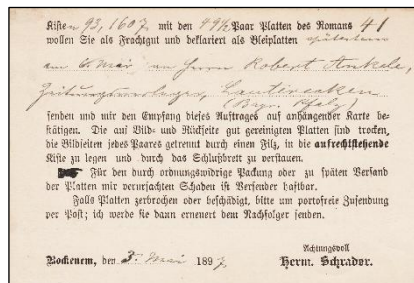 Kisten 93, 1607 mit den 49½ Paar Platten des Romans 41
wollen Sie als Frachtgut und deklariert als Bleiplatten spätestens
am 6. Mai an Herrn Robert Ankele,
Zeitungsverleger, Lauterecken
(Bayr. Pfalz)
senden und mir den Empfang dieses Auftrages auf anhängender Karte be-
stätigen. Die auf Bild- und Rückseite gut gereinigten Platten sind trocken,
die Bildseiten jedes Paares getrennt durch einen Filz, in die aufrechtstehende
Kiste zu legen und durch das Schlußbrett zu verstauen.
Für den durch ordnungswidrige Packung oder zu späten Versand
der Platten mir verursachten Schaden ist Versender haftbar.
Falls Platten zerbrochen oder beschädigt, bitte um portofreie Zusendung
per Post; ich werde sie dann erneuert dem Nachfolger senden.
Achtungsvoll
Bockenem, den 3. Mai 1897. Herm. Schrader.